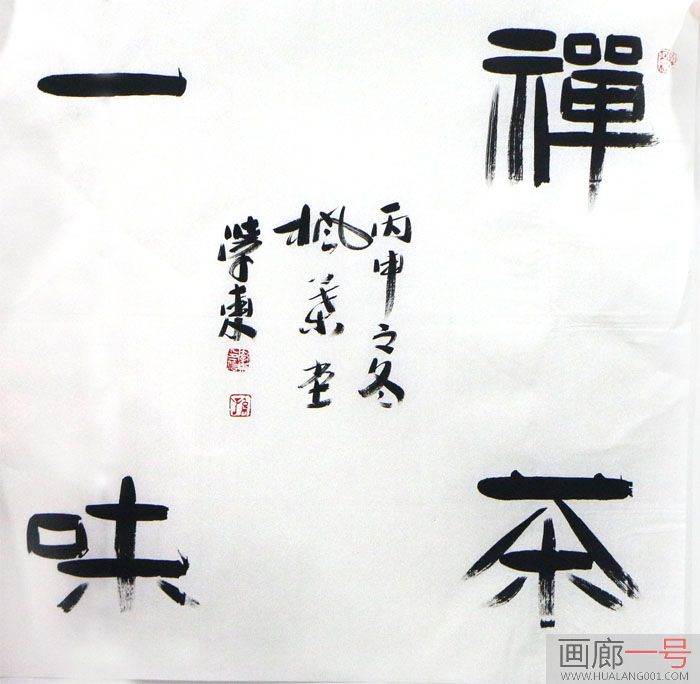 禪茶
一味
丙申之冬
楓葉堂
榮東
画廊一号
WWW.HUALANG001.COM